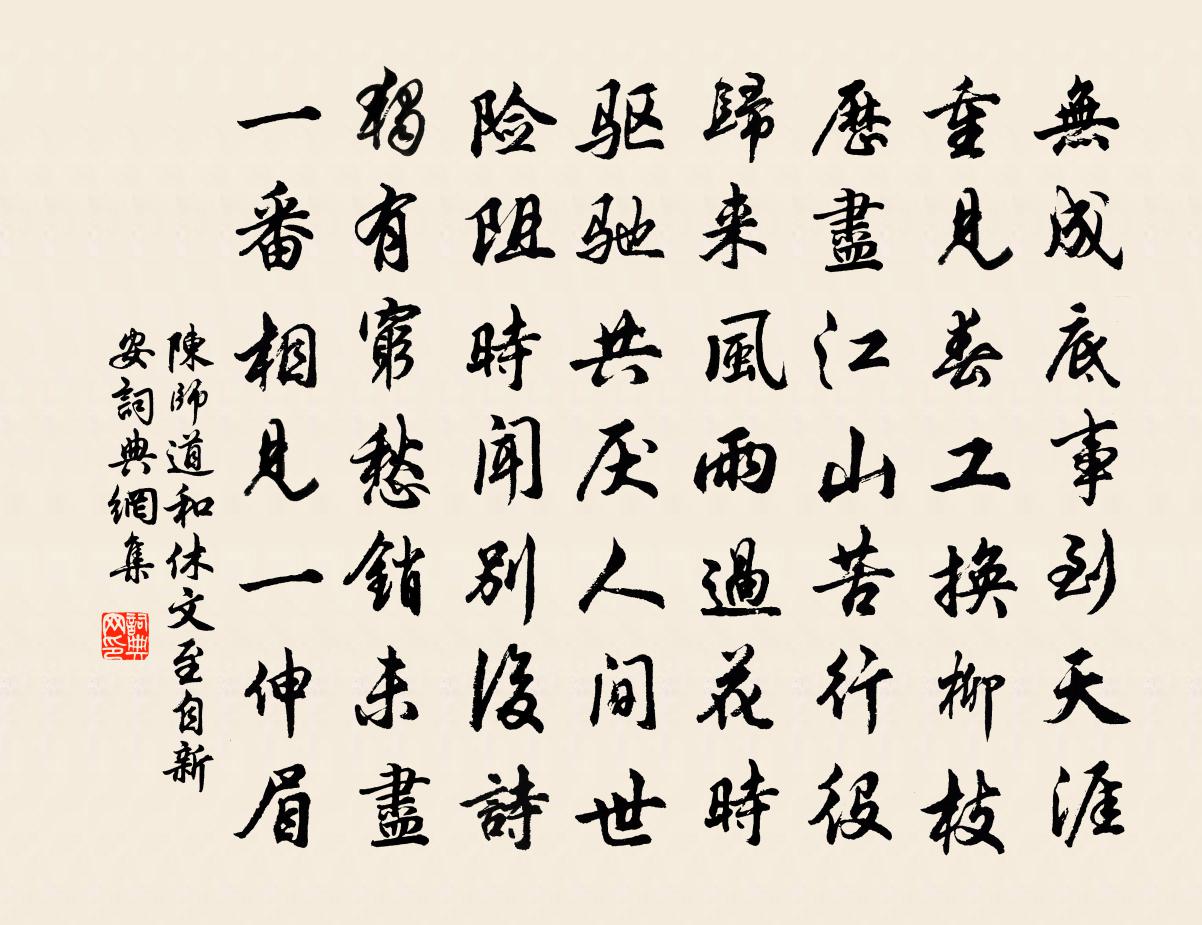 無成底事到天涯
重見春工換柳枝
歷盡江山苦行役
歸来風雨過花時
驱驰共厌人间世
险阻時聞別後詩
獨有窮愁銷未盡
一番相見一伸眉
陳師道和休文至自新
安詞典網集
詞典网印